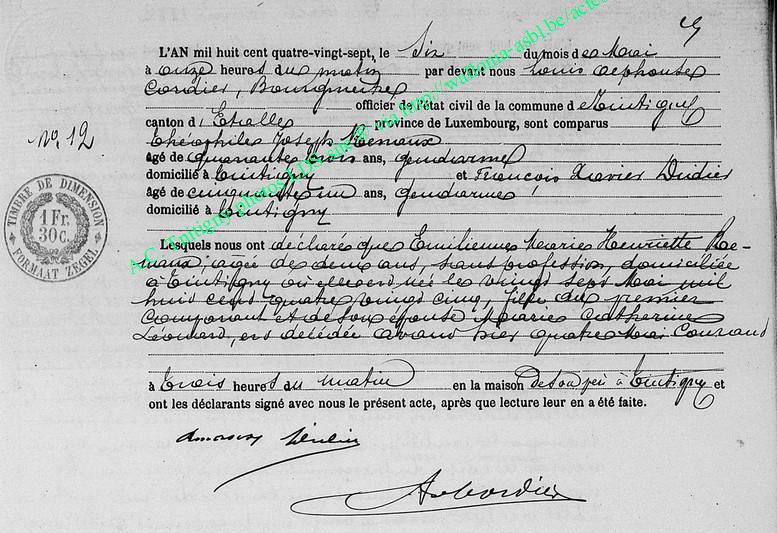 L'AN mil huit cent quatre-vingt-sept, le Six du mois de Mai
à onze heures du matin par devant nous Louis Alphonse
Cordier, Bourgmestre
officier de l'état civil de la commune de Tintigny
canton d'Etalle province de Luxembourg, sont comparus
Théophile Joseph Remaux
âgé de quarante trois ans, gendarme
domicilié à Tintigny et François Xavier Dudier
âgé de cinquante un ans, gendarme
domicilié à Tintigny
Lesquels nous ont déclaré que Emilienne Marie Henriette Re-
maux, agée de deux ans, sans profession, domiciliée
à Tintigny où elle est née le vingt sept Mai mil
huit cent quatre vingt cinq, fille du premier
Comparant et de son épouse Marie Catherine
Léonard, est décédée avant hier quatre Mai Courant
à trois heures du matin en la maison de son père à Tintigny et
ont les déclarants signé avec nous le présent acte, après que lecture leur en a été faite.
No. 12
TIMBRE DE DIMENSION
1 Fr. 30c.
FORMAAT ZEGEL
A.C. Tintigny photos LDS site via http://wallonia-asbl.be/acte